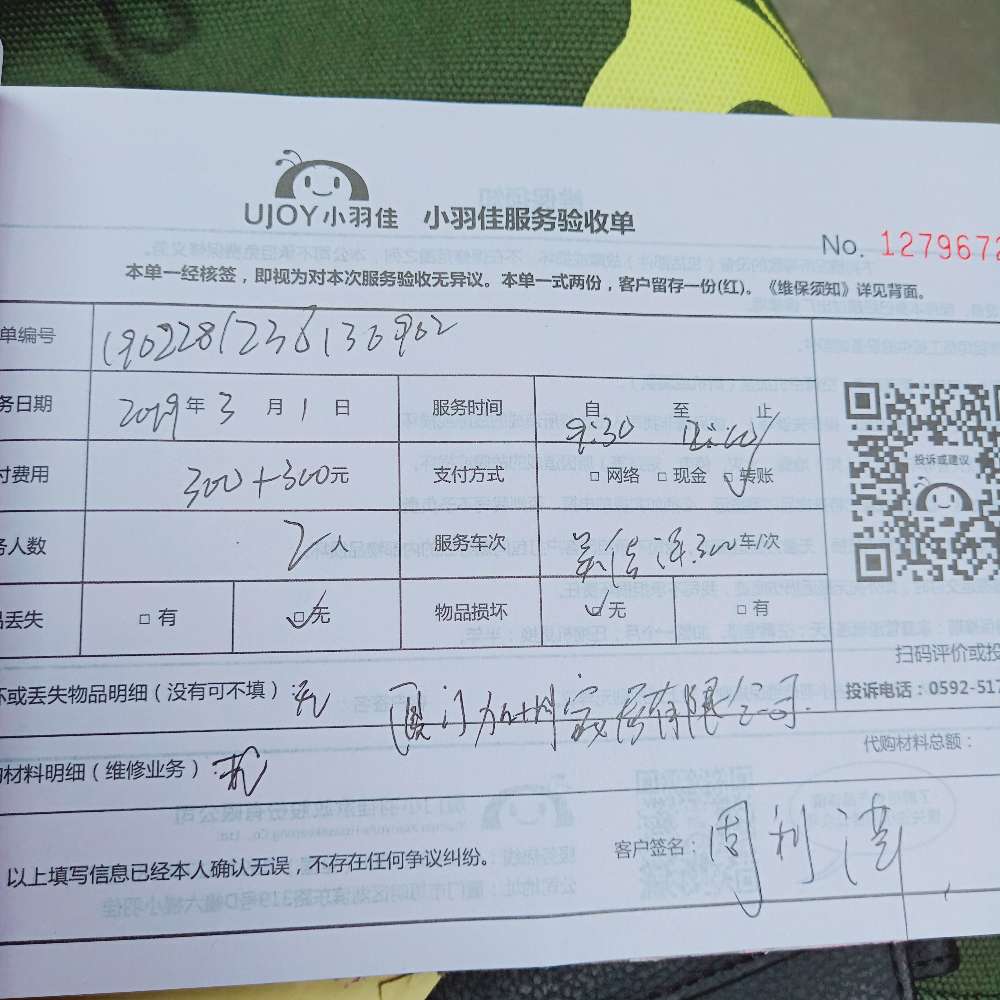 UJOY小羽佳 小羽佳服务验收单
No. 1279672
本单一经核签，即视为对本次服务验收无异议。本单一式两份，客户留存一份(红)。《维保须知》详见背面。
单编号 1902281236130902
务日期 2019年3月1日 服务时间 自 至 止
9:30 12:00
付费用 300+300元 支付方式 □ 网络 □ 现金 □ 转账
务人数 2人 服务车次 300车/次
丢失 □ 有 □ 无 物品损坏 □ 无 □ 有
投诉或建议
扫码评价或投
投诉电话：0592-517
坏或丢失物品明细（没有可不填）：无
有限公司
材料明细（维修业务）：无 代购材料总额：
以上填写信息已经本人确认无误，不存在任何争议纠纷。 客户签名：周利